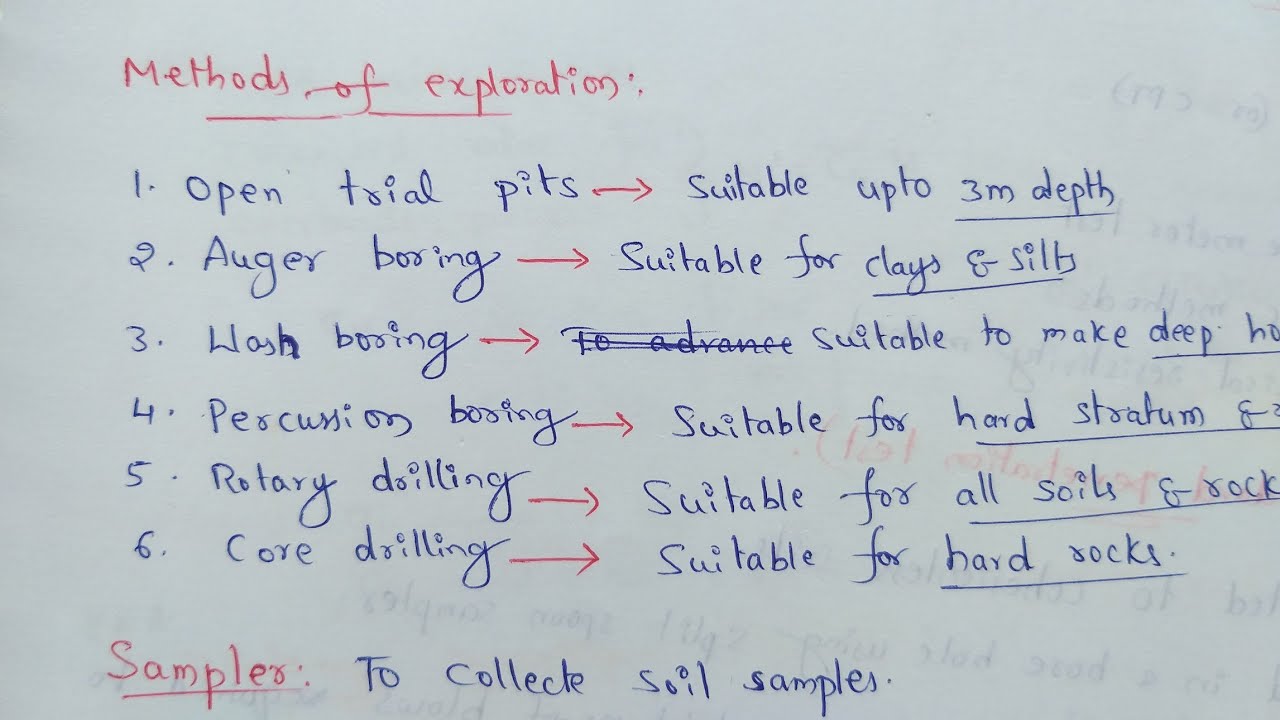 Methods of exploration:
1. Open trial pits → Suitable upto 3m depth
2. Auger boring → Suitable for clays & silts
3. Wash boring → ~~To advance~~ suitable to make deep ho
4. Percussion boring → Suitable for hard stratum &
5. Rotary drilling → Suitable for all soils & rock
6. Core drilling → Suitable for hard rocks.
Sampler: To collecte soil samples.